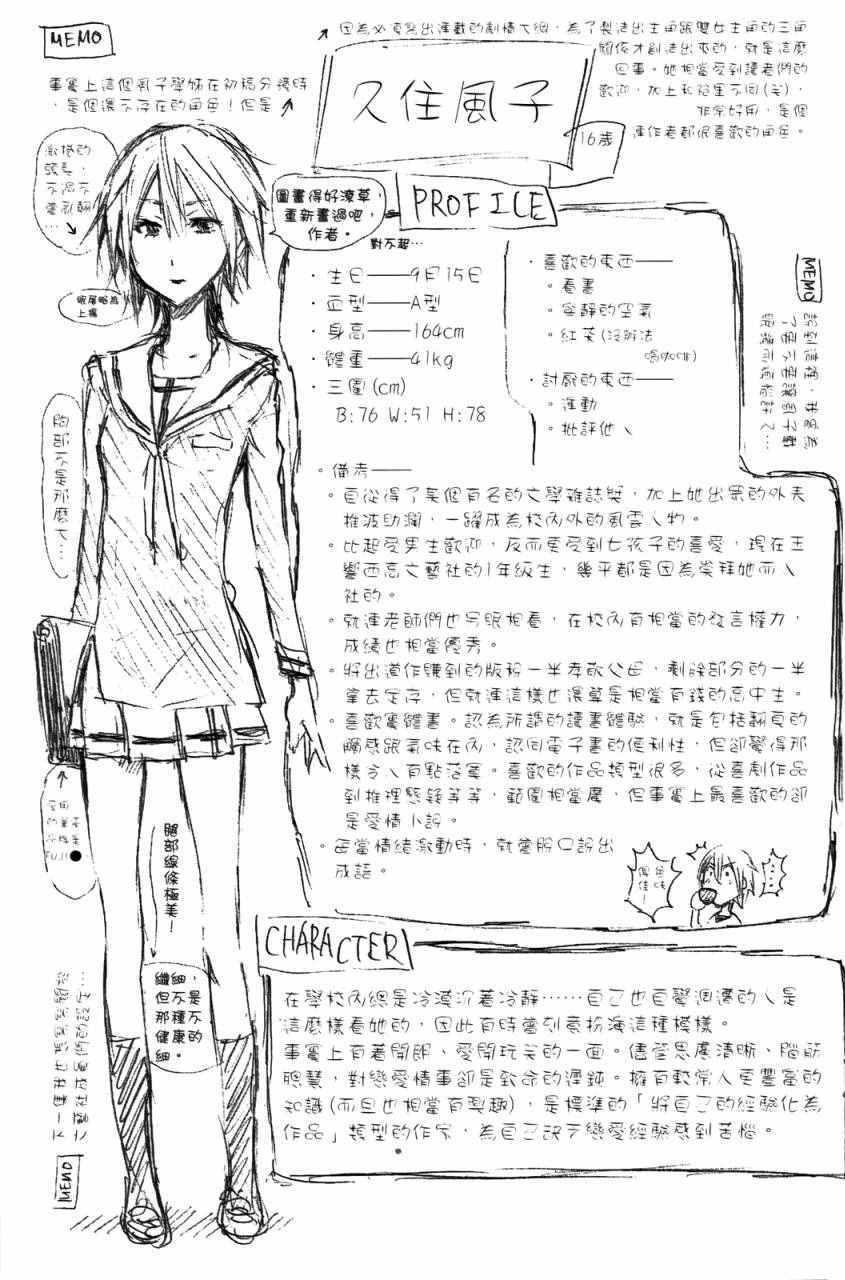 MEMO
因為必須寫出連載的劇情大綱，為了製造出主角跟雙女主角的三角
關係才創造出來的，就是這麼
回事。她相當受到讀者們的
歡迎，加上和裕里不同(笑)，
非常好用，是個
連作者都很喜歡的角色。
事實上這個風子學姊在初稿分鏡時
，是個還不存在的角色！但是
久住風子
16歲
PROFILE
圖畫得好潦草，
重新畫過吧，
作者。
對不起…
・生日——9月15日
・血型——A型
・身高——164cm
・體重——41kg
・三圍(cm)
B:76 W:51 H:78
・喜歡的東西——
。看書
。寧靜的空氣
。紅茶(沒辦法
喝咖啡)
・討厭的東西——
。運動
。批評他人
MEMO
胸部不是那麼大…
・備考——
。自從得了某個有名的文學雜誌獎，加上她出眾的外表
推波助瀾，一躍成為校內外的風雲人物。
。比起受男生歡迎，反而更受到女孩子的喜愛，現在玉
響西高文藝社的1年級生，幾乎都是因為崇拜她而入
社的。
。就連老師們也另眼相看，在校內有相當的發言權力，
成績也相當優秀。
。將出道作賺到的版稅一半孝敬父母，剩餘部分的一半
拿去定存，但就連這樣也還算是相當有錢的高中生。
。喜歡實體書。認為所謂的讀書體驗，就是包括翻頁的
觸感跟氣味在內，認同電子書的便利性，但卻覺得那
樣令人有點落寞。喜歡的作品類型很多，從喜劇作品
到推理懸疑等等，範圍相當廣，但事實上最喜歡的卻
是愛情小說。
。每當情緒激動時，就會脫口說出
成語。
腳部線條極美！
纖細，
但不是
那種不
健康的
細。
CHARACTER
在學校內總是冷漠沉著冷靜……自己也自覺週遭的人是
這麼樣看她的，因此有時會刻意扮演這種模樣。
事實上有著開朗、愛開玩笑的一面。儘管思慮清晰、腦筋
聰慧，對戀愛情事卻是致命的遲鈍。擁有較常人更豐富的
知識(而且也相當有興趣)，是標準的「將自己的經驗化為
作品」類型的作家，為自己缺乏戀愛經驗感到苦惱。
MEMO